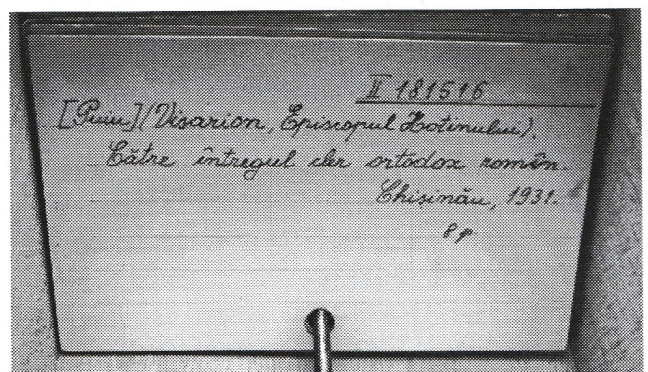 II 181516
[Puiu] (Visarion, Episcopul Hotinului).
Către întregul cler ortodox român.
Chișinău, 1931.
8 p